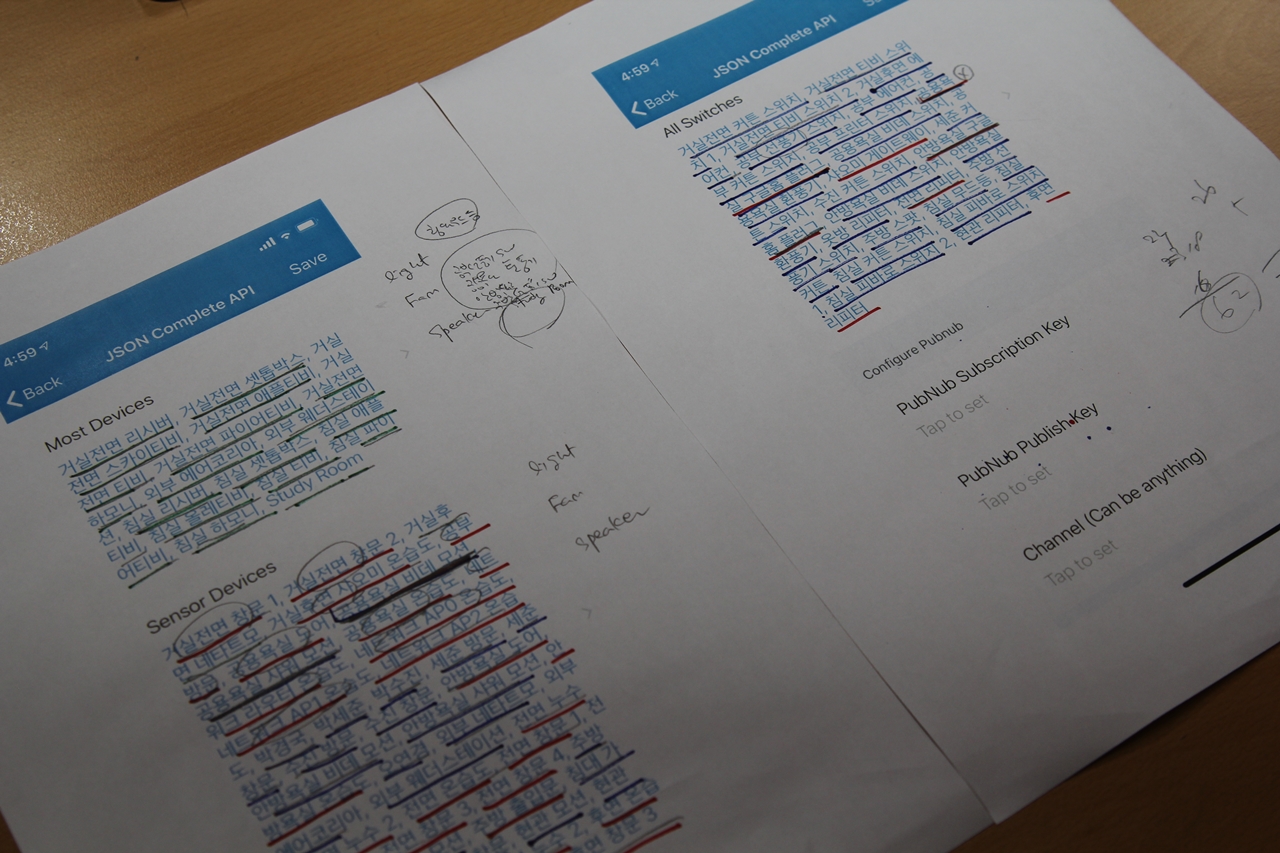 4:59
Save
Back
JSON Complete API
Most Devices
거실전면 리시버, 거실전면 셋톱박스, 거실
전면 스카이티비, 거실전면 애플티비, 거실
전면 티비, 거실전면 파이어티비, 거실전면
하모니, 외부 에어코리아, 외부 웨더스테이
션, 침실 리시버, 침실 셋톱박스, 침실 애플
티비, 침실 올레티비, 침실 티비, 침실 파이
어티비, 침실 하모니, Study Room
Sensor Devices
거실전면 창문 1, 거실전면 창문 2, 거실후
면 네타트모, 거실후면 샤오미 온습도, 공부
방문, 공용욕실 도어, 공용욕실 비데 모션
공용욕실 샤워 모션, 공용욕실 온습도, 네트
워크 라우터 온습도, 네트워크 AP0 온습도,
네트워크 AP1 온습도, 네트워크 AP2 온습
도, 박경국, 박세준, 박수진, 세주 방문, 세준
창문, 수진 방문, 수진 창문, 안방욕실 도어, 안
방욕실 비데 모션, 안방욕실 샤워 모션, 안
방욕실 온습도, 외부 네타트모, 외부
에어코리아, 외부 웨더스테이션, 전면 누수
누수 2, 전면 온습도, 전면 창문 1, 전
면 창문 3, 전면 창문 4, 주방
주방 출입문, 침대 가
현관 모션, 현관
온습
창문 3
light
Fan
Speaker
Study Room
light
Fan
Speaker
4:59
Back
JSON Complete API
All Switches
거실전면 커튼 스위치, 거실전면 티비 스위
치 1, 거실전면 티비 스위치 2, 거실후면 에
어컨, 공부 선풍기 스위치, 공부 에어컨, 공
부 커튼 스위치, 공부 프린터 스위치, 공용욕
실 거울홈 플러그, 공용욕실 비데 스위치, 공
용욕실 환풍기, 샤오미 게이트웨이, 세준 커
튼 스위치, 수진 커튼 스위치, 안방욕실 거울
홈 플러그, 안방욕실 비데 스위치, 안방욕실
환풍기, 옷방 리피터, 전면 리피터, 주방 선
풍기 스위치, 주방 스팟, 침실 모드등, 침실
커튼, 침실 커튼 스위치, 침실 피바로 스위치
1, 침실 피바로 스위치 2, 현관 리피터, 후면
리피터
Configure Pubnub
PubNub Subscription Key
Tap to set
PubNub Publish Key
Tap to set
Channel (Can be anything)
Tap to set
26
18
62